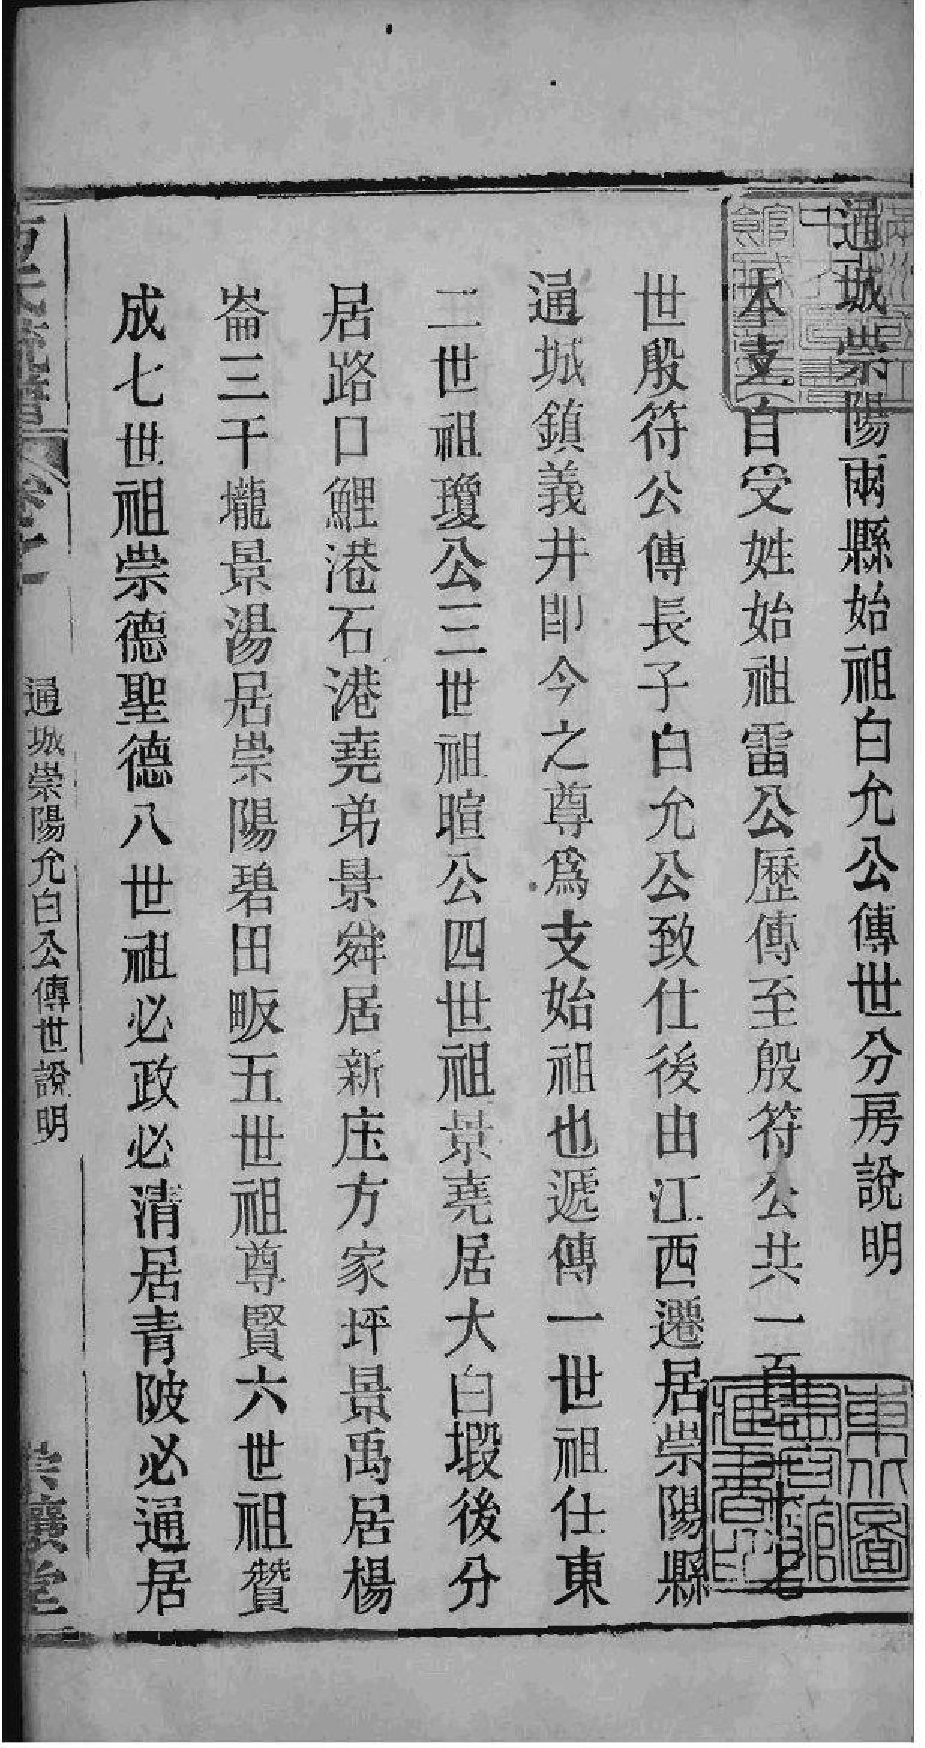 通城崇陽兩縣始祖白允公傳世分房說明
本支自受姓始祖雷公歷傳至殷符公共一百
世殷符公傳長子白允公致仕後由江西遷居崇陽縣
通城鎮義井即今之尊爲支始祖也遞傳一世祖仕東
二世祖瓊公三世祖暄公四世祖景堯居大白塅後分
居路口鯉港石港堯弟景舜居新庄方家坪景禹居楊
崙三干壠景湯居崇陽碧田畈五世祖尊賢六世祖贊
成七世祖崇德聖德八世祖必政必清居青陂必通居
方氏統譜 卷七
通城崇陽允白公傳世說明